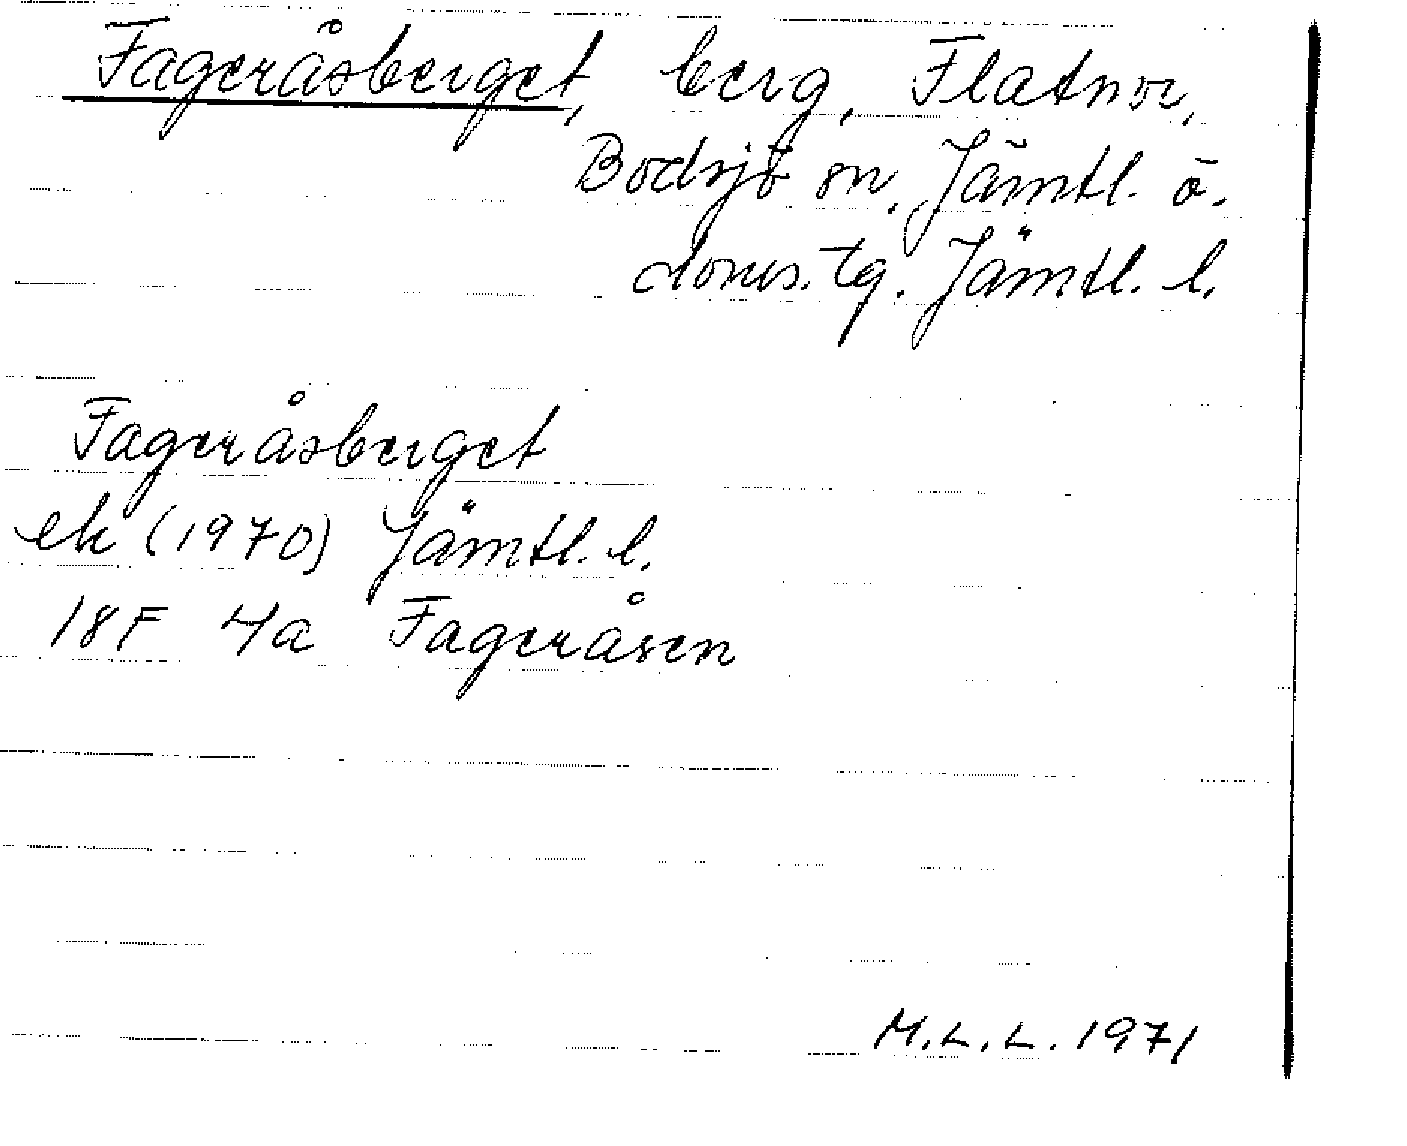 Fageråsberget, berg, Flatnor,
Bodsjö sn, Jämtl. ö.
doms. tg. Jämtl. l.
Fageråsberget
ek (1970) Jämtl. l.
18F 4a Fageråsen
M.L.L. 1971